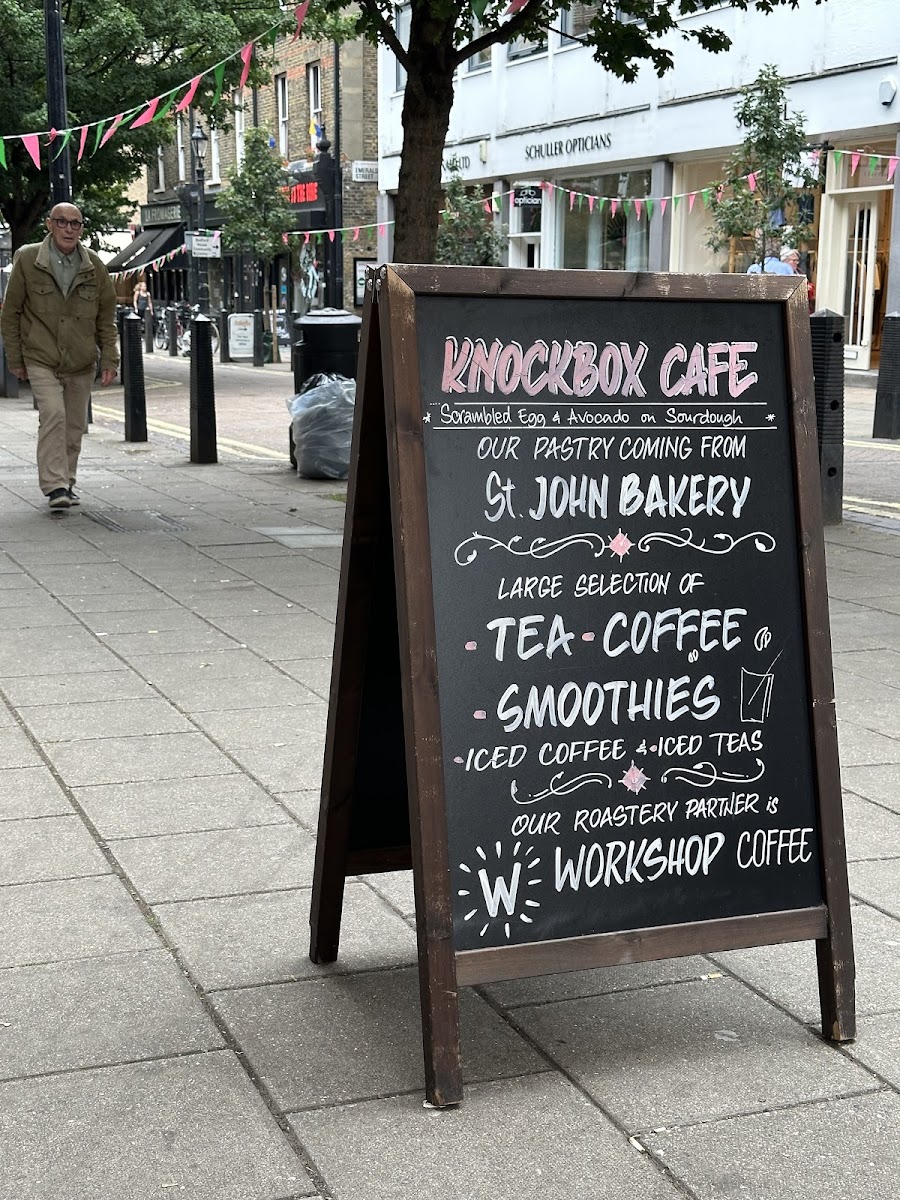 KNOCKBOX CAFE
* Scrambled Egg & Avocado on Sourdough *
OUR PASTRY COMING FROM
St. JOHN BAKERY
LARGE SELECTION OF
- TEA - COFFEE
- SMOOTHIES
- ICED COFFEE & - ICED TEAS
OUR ROASTERY PARTNER is
W WORKSHOP COFFEE
SCHULLER OPTICIANS
optician
EMERALD
STREET
LA FROMAGERIE